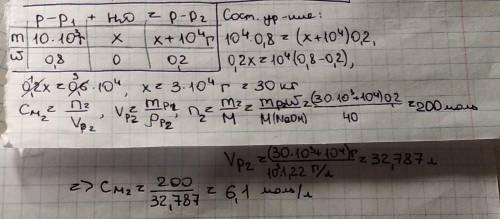 р-р₁ + H₂O = р-р₂ Сост. ур-ние:
m 10·10³г x x+10⁴г 10⁴·0,8=(x+10⁴)0,2,
ω 0,8 0 0,2 0,2x=10⁴(0,8-0,2),
0,2x=0,6·10⁴, x=3·10⁴г=30 кг
Cм₂=n₂/Vр₂, Vр₂=mр₂/ρр₂, n₂=m₂/M=mр₂ω₂/M(NaOH)=(30·10³+10⁴)0,2/40=200 моль
Vр₂=(30·10³+10⁴)г/10³·1,22 г/л=32,787 л
=> Cм₂=200/32,787=6,1 моль/л